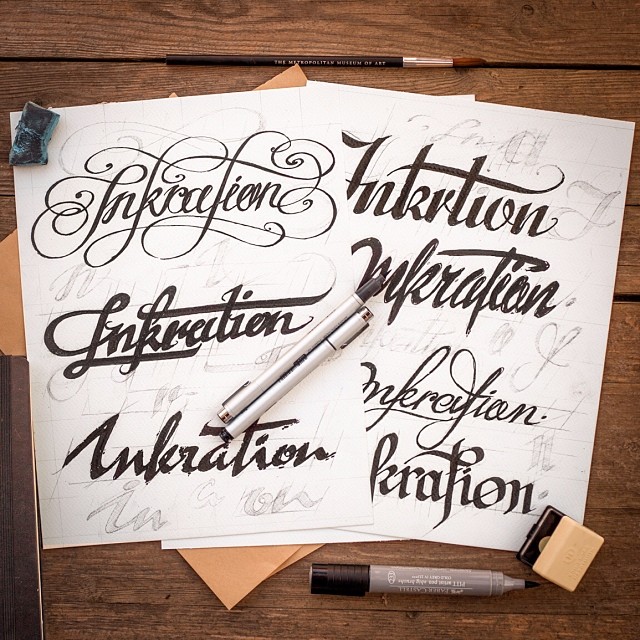 THE METROPOLITAN MUSEUM OF ART
Inkration
Inkration
Inkration
in on
Inkrtion
Inkration.
Inkration.
kration.
PITT artist pen
FABER-CASTELL